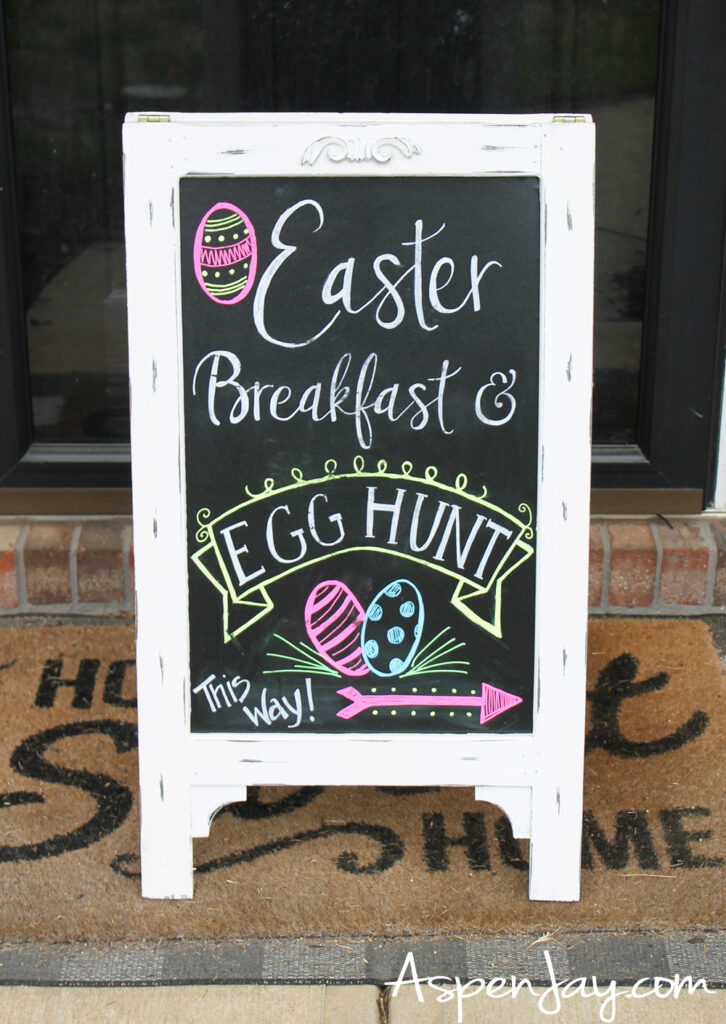 Easter
Breakfast &
EGG HUNT
This
way!
HOME
HOME
AspenJay.com